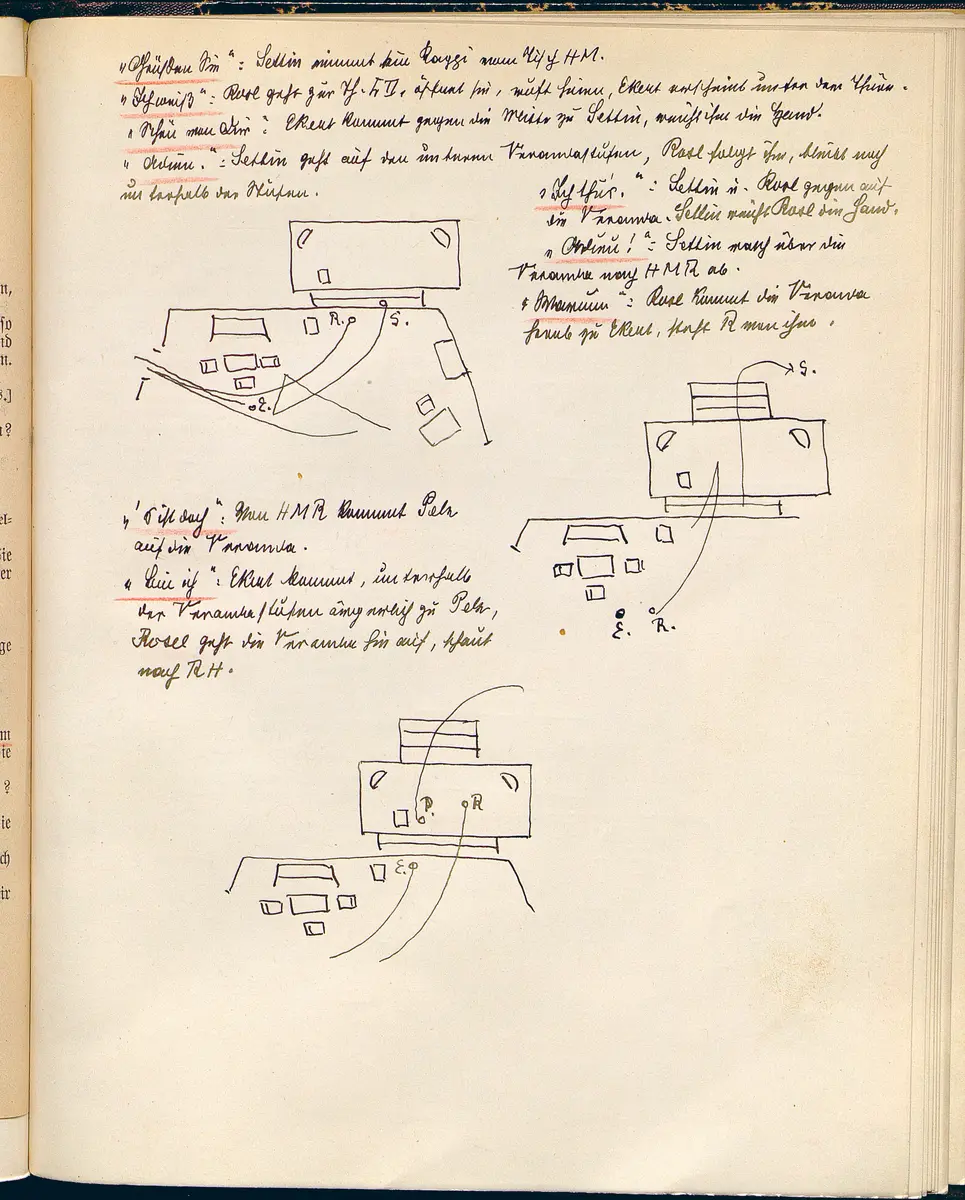 „Grüßen Sie“: Settin nimmt sein Kappi vom Tisch HM.
„Ich weiß“: Rosl geht zur Th. L II, öffnet sie, ruft hinein, Ekert erscheint unter der Thüre.
„Schön von Dir“: Ekert kommt gegen die Mitte zu Settin, reicht ihm die Hand.
„Adieu.“: Settin geht auf den unteren Verandastufen, Rosl folgt ihm, bleibt noch
unterhalb der Stufen.
„Ich thu's.“: Settin u. Rosl gegen auf
die Veranda. Settin reicht Rosl die Hand.
„Adieu!“: Settin rasch über die
Veranda nach HMR ab.
„Warum“: Rosl kommt die Veranda
herab zu Ekert, steht R von ihm.
R. S.
E.
S.
E. R.
„'s ist doch“: Von HMR kommt Pele
auf die Veranda.
„bin ich“: Ekert kommt, unterhalb
der Verandastufen ärgerlich zu Pele,
Rosel geht die Veranda hinauf, schaut
nach RH.
P. R
E.
n,
so
nd
n.
s.]
n?
el-
Sie
er
ge
m
ie
?
ie
ch
ir